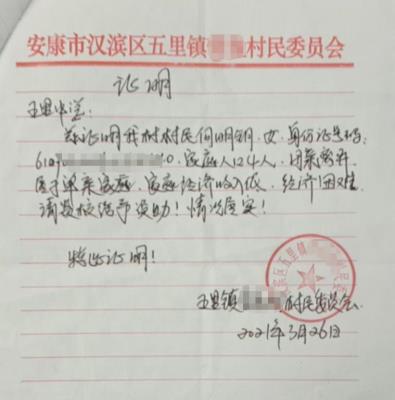 安康市汉滨区五里镇 村民委员会
证明
五里中学:
兹证明我村村民何明明,女,身份证号码:
610 0,家庭人口4人,因 离异
属于单亲家庭,家庭经济收入低,经济困难
请贵校给予资助!情况属实!
特此证明!
五里镇 村民委员会
2021年3月26日
滨区五里镇